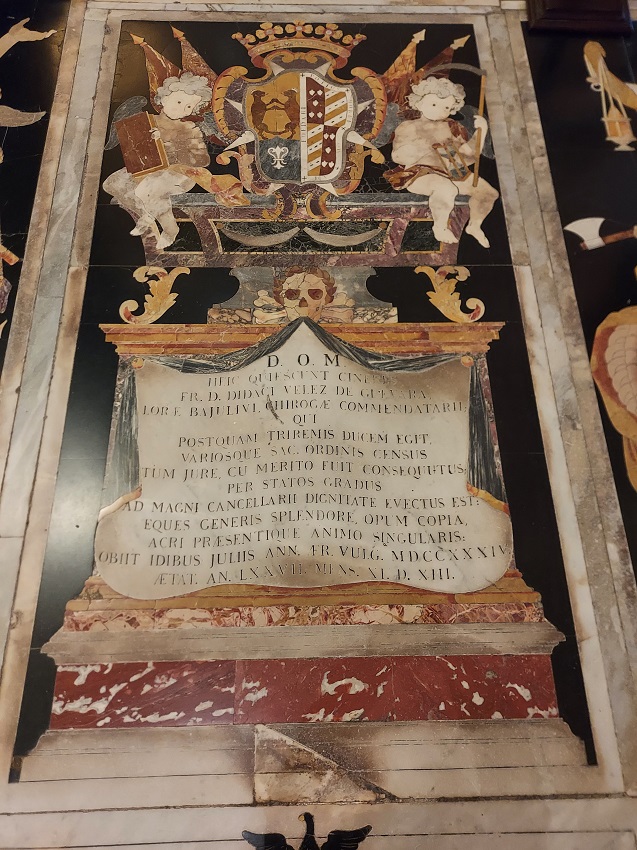 D. O. M
HEIC QUIESCUNT CINERES
FR. D. DIDACI VELEZ DE GUEVARA
LORÆ BAJULIVI, CHIROGÆ COMMENDATARII:
QUI
POSTQUAM TRIREMIS DUCEM EGIT,
VARIOSQUE SAC. ORDINIS CENSUS
TUM JURE, CU MERITO FUIT CONSEQUUTUS;
PER STATOS GRADUS
AD MAGNI CANCELLARII DIGNITATE EVECTUS EST:
EQUES GENERIS SPLENDORE, OPUM COPIA,
ACRI PRÆSENTIQUE ANIMO SINGULARIS:
OBIIT IDIBUS JULIIS ANN. FR. VULG. MDCCXXXIV.
ÆTAT. AN. LXXVII. MENS. XI. D. XIII.